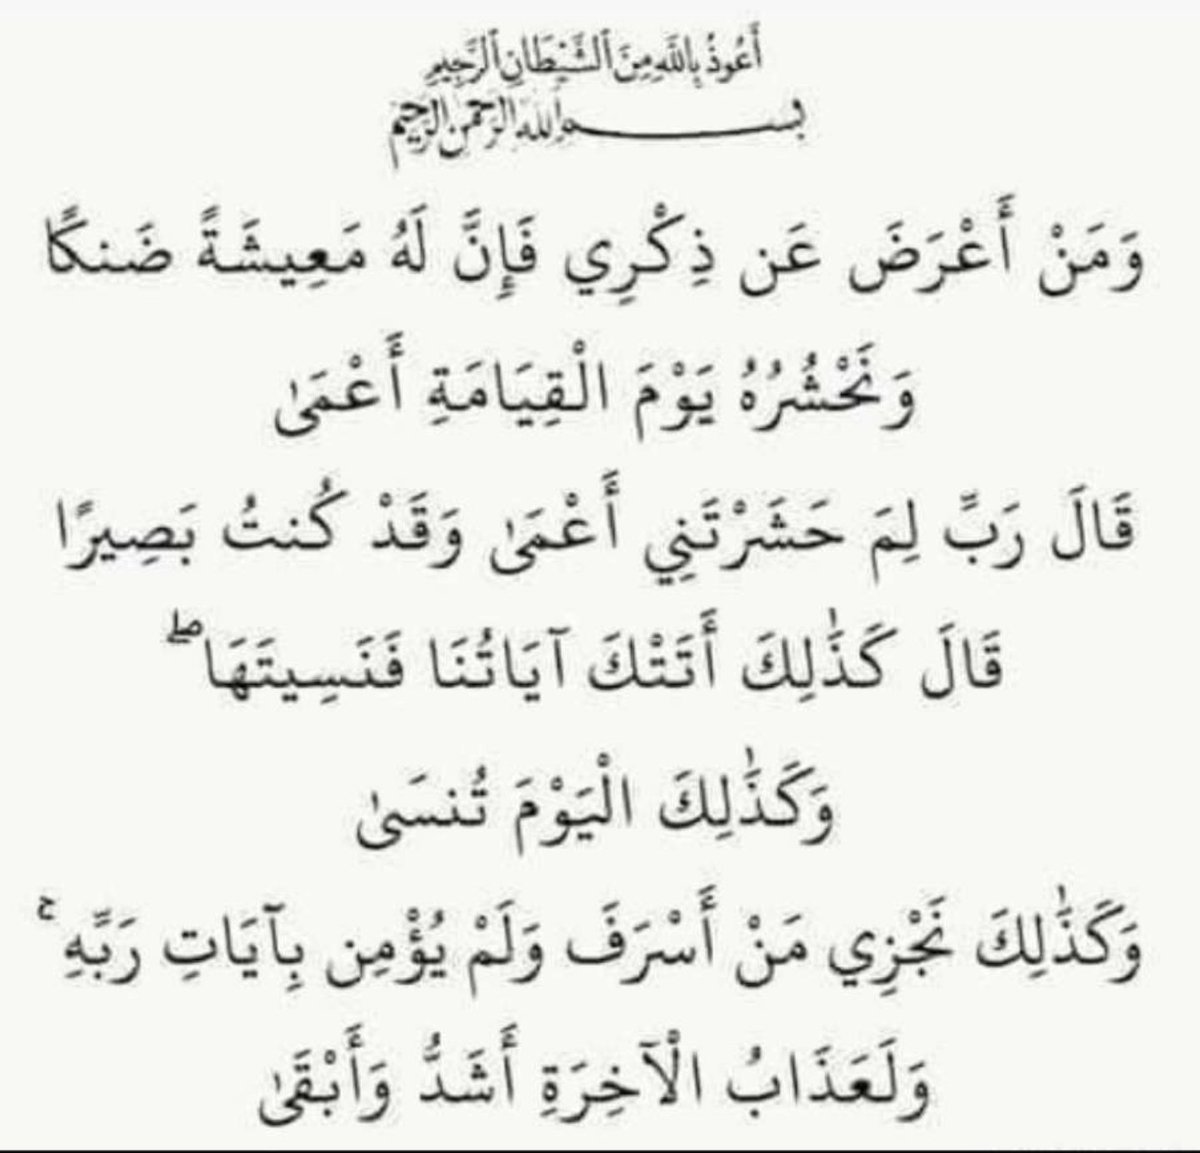 أَعُوذُ بِاللَّهِ مِنَ ٱلشَّيْطَانِ ٱلرَّجِيمِ
بسم الله الرحمن الرحيم
وَمَنْ أَعْرَضَ عَن ذِكْرِي فَإِنَّ لَهُ مَعِيشَةً ضَنكًا
وَنَحْشُرُهُ يَوْمَ الْقِيَامَةِ أَعْمَىٰ
قَالَ رَبِّ لِمَ حَشَرْتَنِي أَعْمَىٰ وَقَدْ كُنتُ بَصِيرًا
قَالَ كَذَٰلِكَ أَتَتْكَ آيَاتُنَا فَنَسِيتَهَا ۖ
وَكَذَٰلِكَ الْيَوْمَ تُنسَىٰ
وَكَذَٰلِكَ نَجْزِي مَنْ أَسْرَفَ وَلَمْ يُؤْمِن بِآيَاتِ رَبِّهِ ۚ
وَلَعَذَابُ الْآخِرَةِ أَشَدُّ وَأَبْقَىٰ